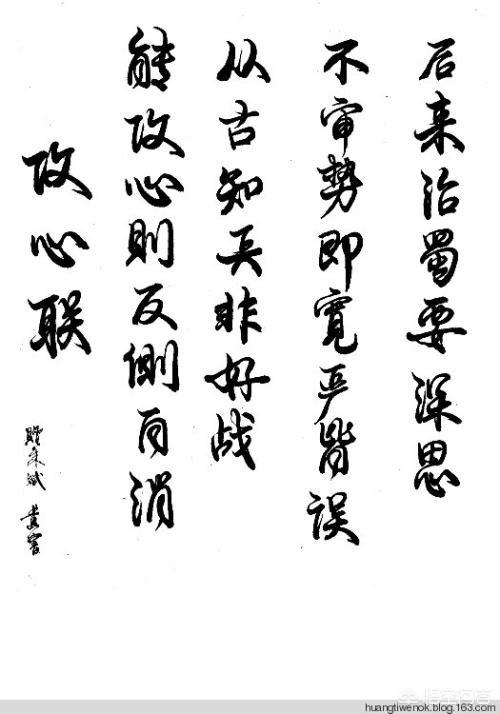 攻心联
能攻心則反側自消
从古知兵非好战
不审势即寬严皆误
后来治蜀要深思
huangtiwenok.blog.163.com